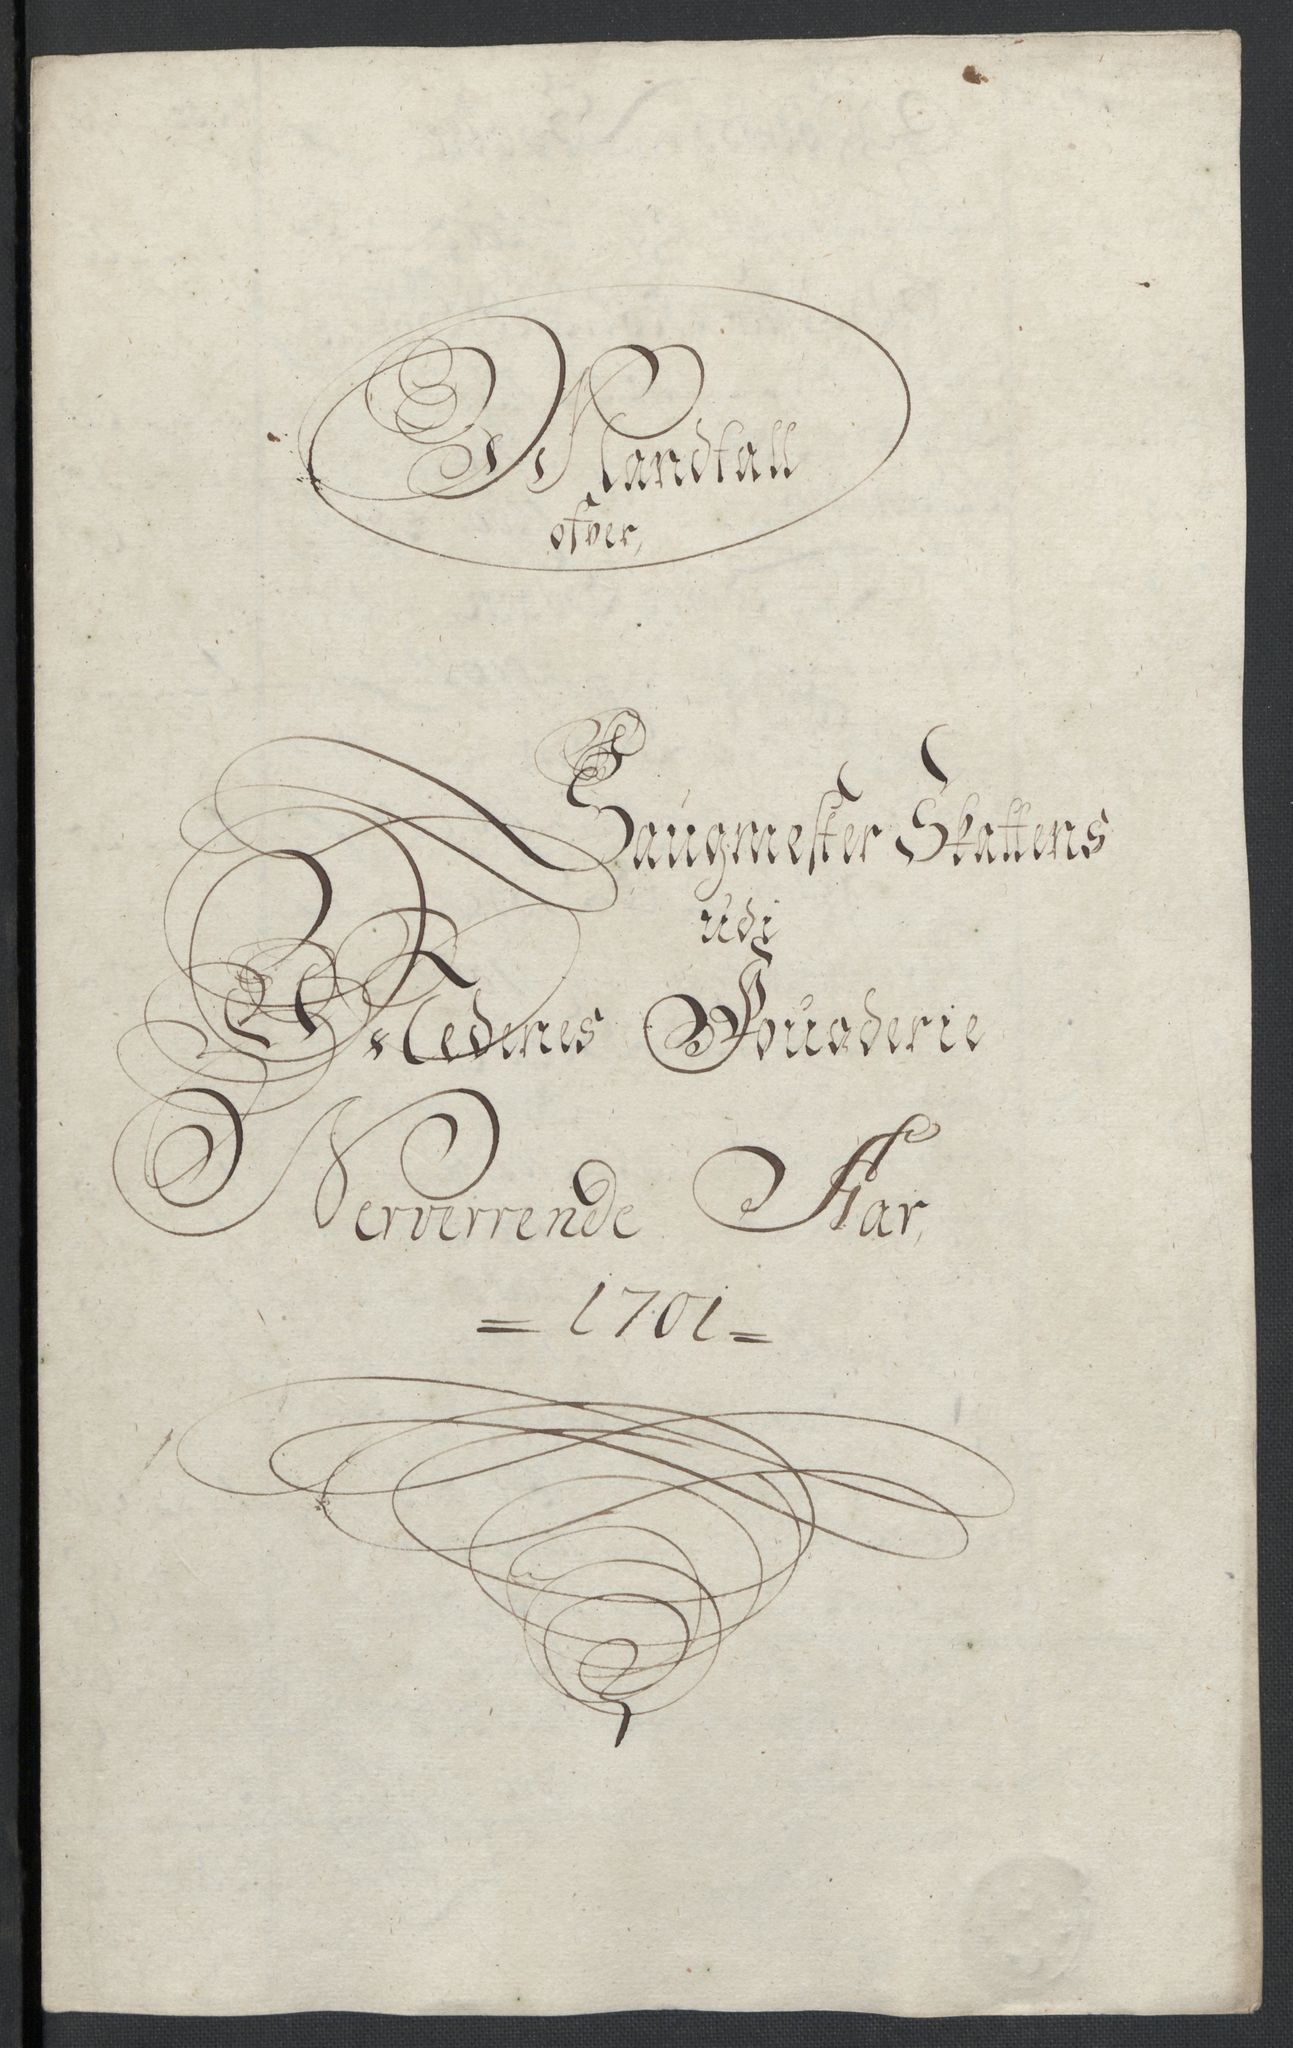 Mandtall
ofver,
Saugmester Skattens
udi
Nedenes Fougderie
Nerverrende Aar,
= 1701 =